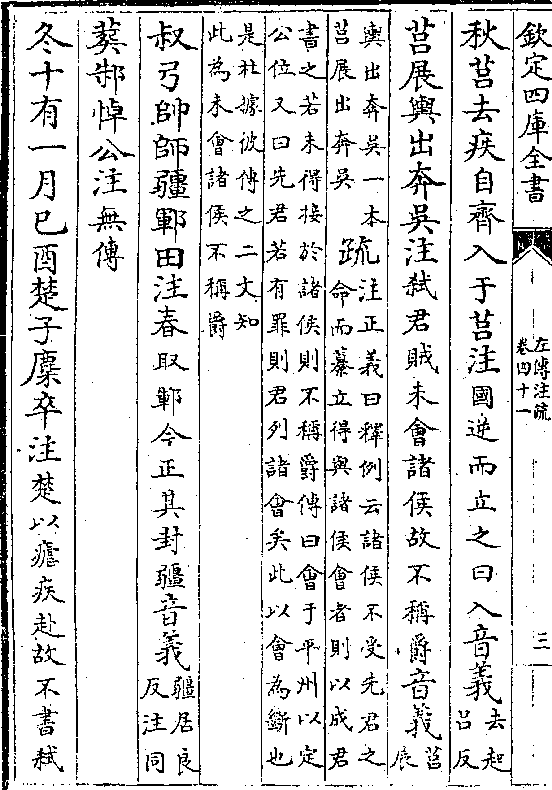 欽定四庫全書
左傳注疏
卷四十一
三
秋莒去疾自齊入于莒注國逆而立之曰入音義去起
吕反
莒展輿出奔吳注弑君賊未會諸侯故不稱爵音義莒
展
輿出奔吳一本
莒展出奔吳
疏注正義曰釋例云諸侯不受先君之
命而簒立得與諸侯會者則以成君
書之若未得接於諸侯則不稱爵傳曰會于平州以定
公位又曰先君若有罪則君列諸會矣此以會為斷也
是杜據彼傳之二文知
此為未會諸侯不稱爵
叔弓帥師疆鄆田注春取鄆今正其封疆音義疆居良
反注同
葬邾悼公注無傳
冬十有一月巳酉楚子麇卒注楚以瘧疾赴故不書弑